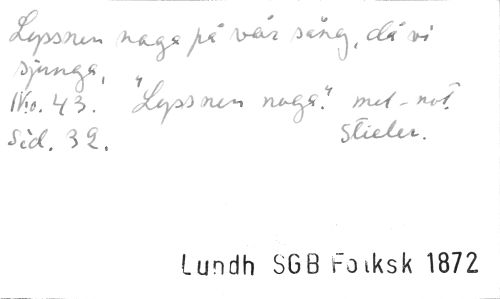 Lyssnen noga på vår sång, då vi
sjunga,
No. 43. "Lyssnen noga." mel-not.
Sid. 32. Stieler.
Lundh SGB Folksk 1872